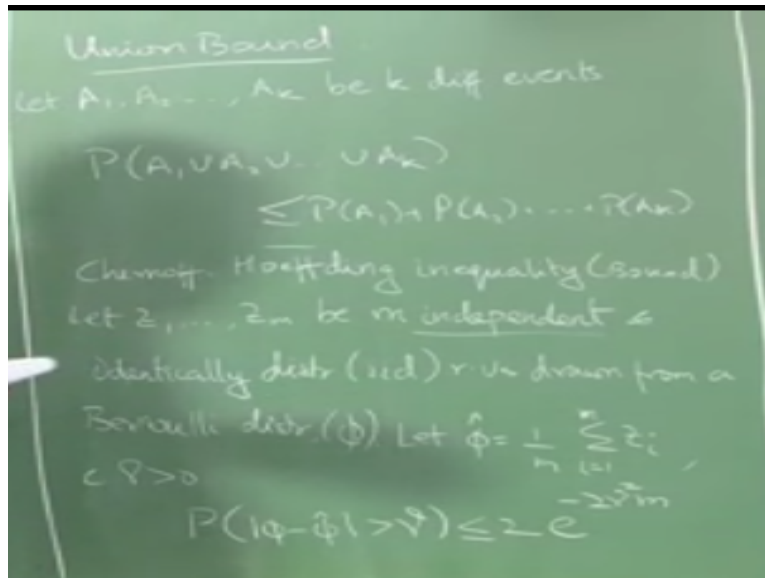 Union Bound
Let A₁, A₂ ..., Aₖ be k diff events
P(A₁ ∪ A₂ ∪ .. ∪ Aₖ)
≤ P(A₁) + P(A₂) + .... + P(Aₖ)
Chernoff Hoeffding inequality (Bound)
Let z₁, ..., zₘ be m independent &
identically distr (iid) r.vs drawn from a
Bernoulli distr. (ϕ) Let ϕ̂ = 1/m Σᵢ₌₁ᵐ zᵢ
& γ>0
P(|ϕ-ϕ̂| > γ) ≤ 2 e^(-2γ²m)